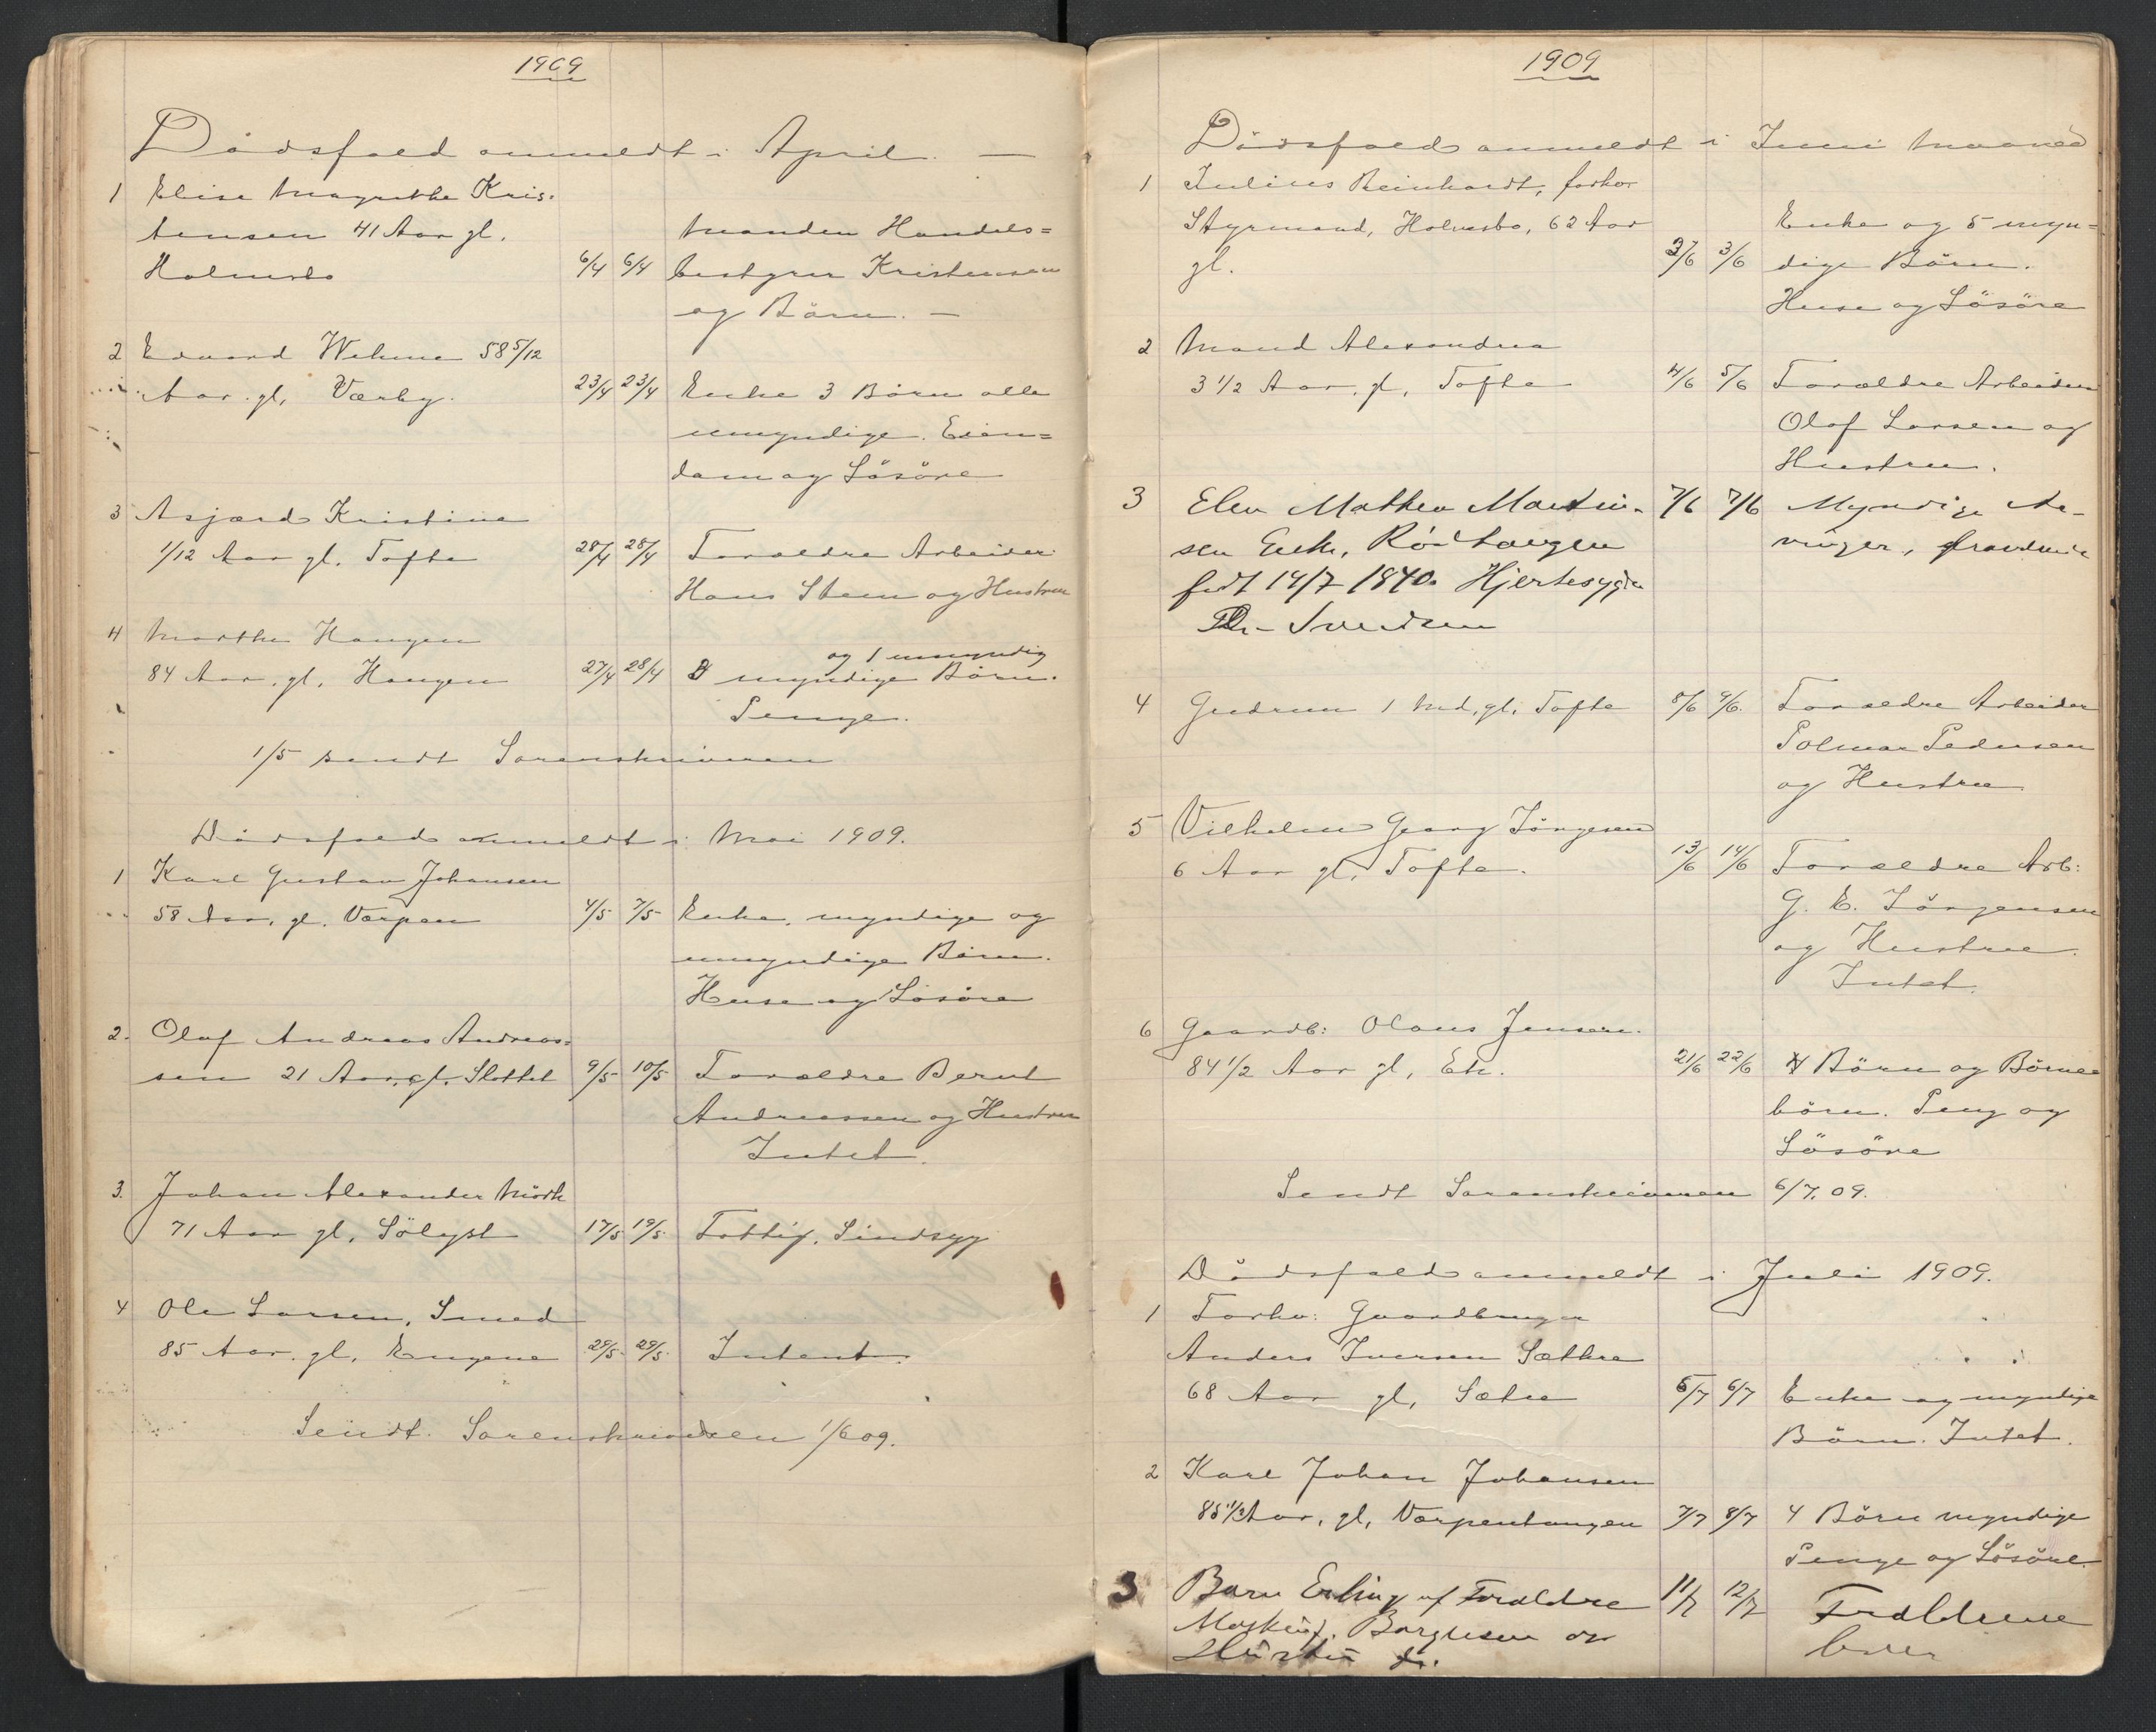 1909
Dödsfald anmeldt i April. —
1 Elise Magrethe Kris-
tensen 41 Aar gl.
Holmsbo 6/4 6/4 Manden Handels=
bestyrer Kristensen
og Börn. —
2 Edvard Wehme 58 5/12
Aar. gl, Værby. 23/4 23/4 Enke 3 Börn alle
umyndige. Eien=
dom og Lösöre
3 Asjærd Kristine
1/12 Aar gl. Tofte 28/4 28/4 Foræeldre Arbeider
Hans Steen og Hustru
4 Marthe Haugen
og 1 umyndig
84 Aar. gl, Haugen 27/4 28/4 myndige Börn.
Penge.
1/5 sendt Sorenskriveren
Dödsfald anmeldt i Mai 1909.
1 Karl Gustav Johansen
58 Aar. gl. Værpen 4/5 7/5 Enke, myndige og
umyndige Börn.
Huse og Lösöre
2. Olaf Andreas Andreas=
sen 21 Aar. gl. Slottet 9/5 10/5 Forældre Bernt
Andreassen og Hustru
Intet.
3. Johan Alexander Mörk
71 Aar gl, Sölyst 17/5 19/5 Fattig. Sindsyg
4 Ole Larsen, Smed
85 Aar. gl, Engene 29/5 29/5 Intent.
Sendt. Sorenskriveren 1/6 09.
1909
Dödsfald anmeldt i Juni Maaned
1 Julius Reinhardt, forhv
Styrmand, Holmsbo, 62 Aar
gl. 2/6 3/6 Enke og 5 myn=
dige Börn.
Huse og Lösöre
2 Maud Alexandra
3 1/2 Aar. gl, Tofte 4/6 5/6 Forældre Arbeider
Olaf Larsen og
Hustru.
3 Elen Mathea Martin- 7/6 7/6 Myndige Ar-
sen Enke, Rødtangen vinger,
født 14/7 1840. Hjertesygdom
Dr. Svendsen
4 Gudrun 1 Md. gl, Tofte 8/6 9/6. Forældre Arbeider
Polmar Pedersen
og Hustru
5 Vilhelm Georg Jörgesen
6 Aar gl, Tofte. 13/6 14/6 Forældre Arb:
G. E. Jörgensen
og Hustru.
Intet.
6 Gaardb: Olaus Jensen.
84 1/2 Aar gl, Ek. 21/6 22/6 4 Börn og Börne
börn. Peng og
Lösöre
Sendt Sorenskriveren 6/7. 09.
Dödsfald anmeldt i Juli 1909.
1 Forhv: Gaardbruger
Anders Iversen Sæthre
68 Aar gl, Sætre 5/7 6/7 Enke og myndige
Börn. Intet.
2 Karl Johan Johansen
85 1/2 Aar, gl, Værpentangen 7/7 8/7 4 Börn myndige
Penge og Lösöre.
3 Barn Erling af Forældre 11/7 12/7 Forældrene
Maskinf. Borgersen og lever
Hustru